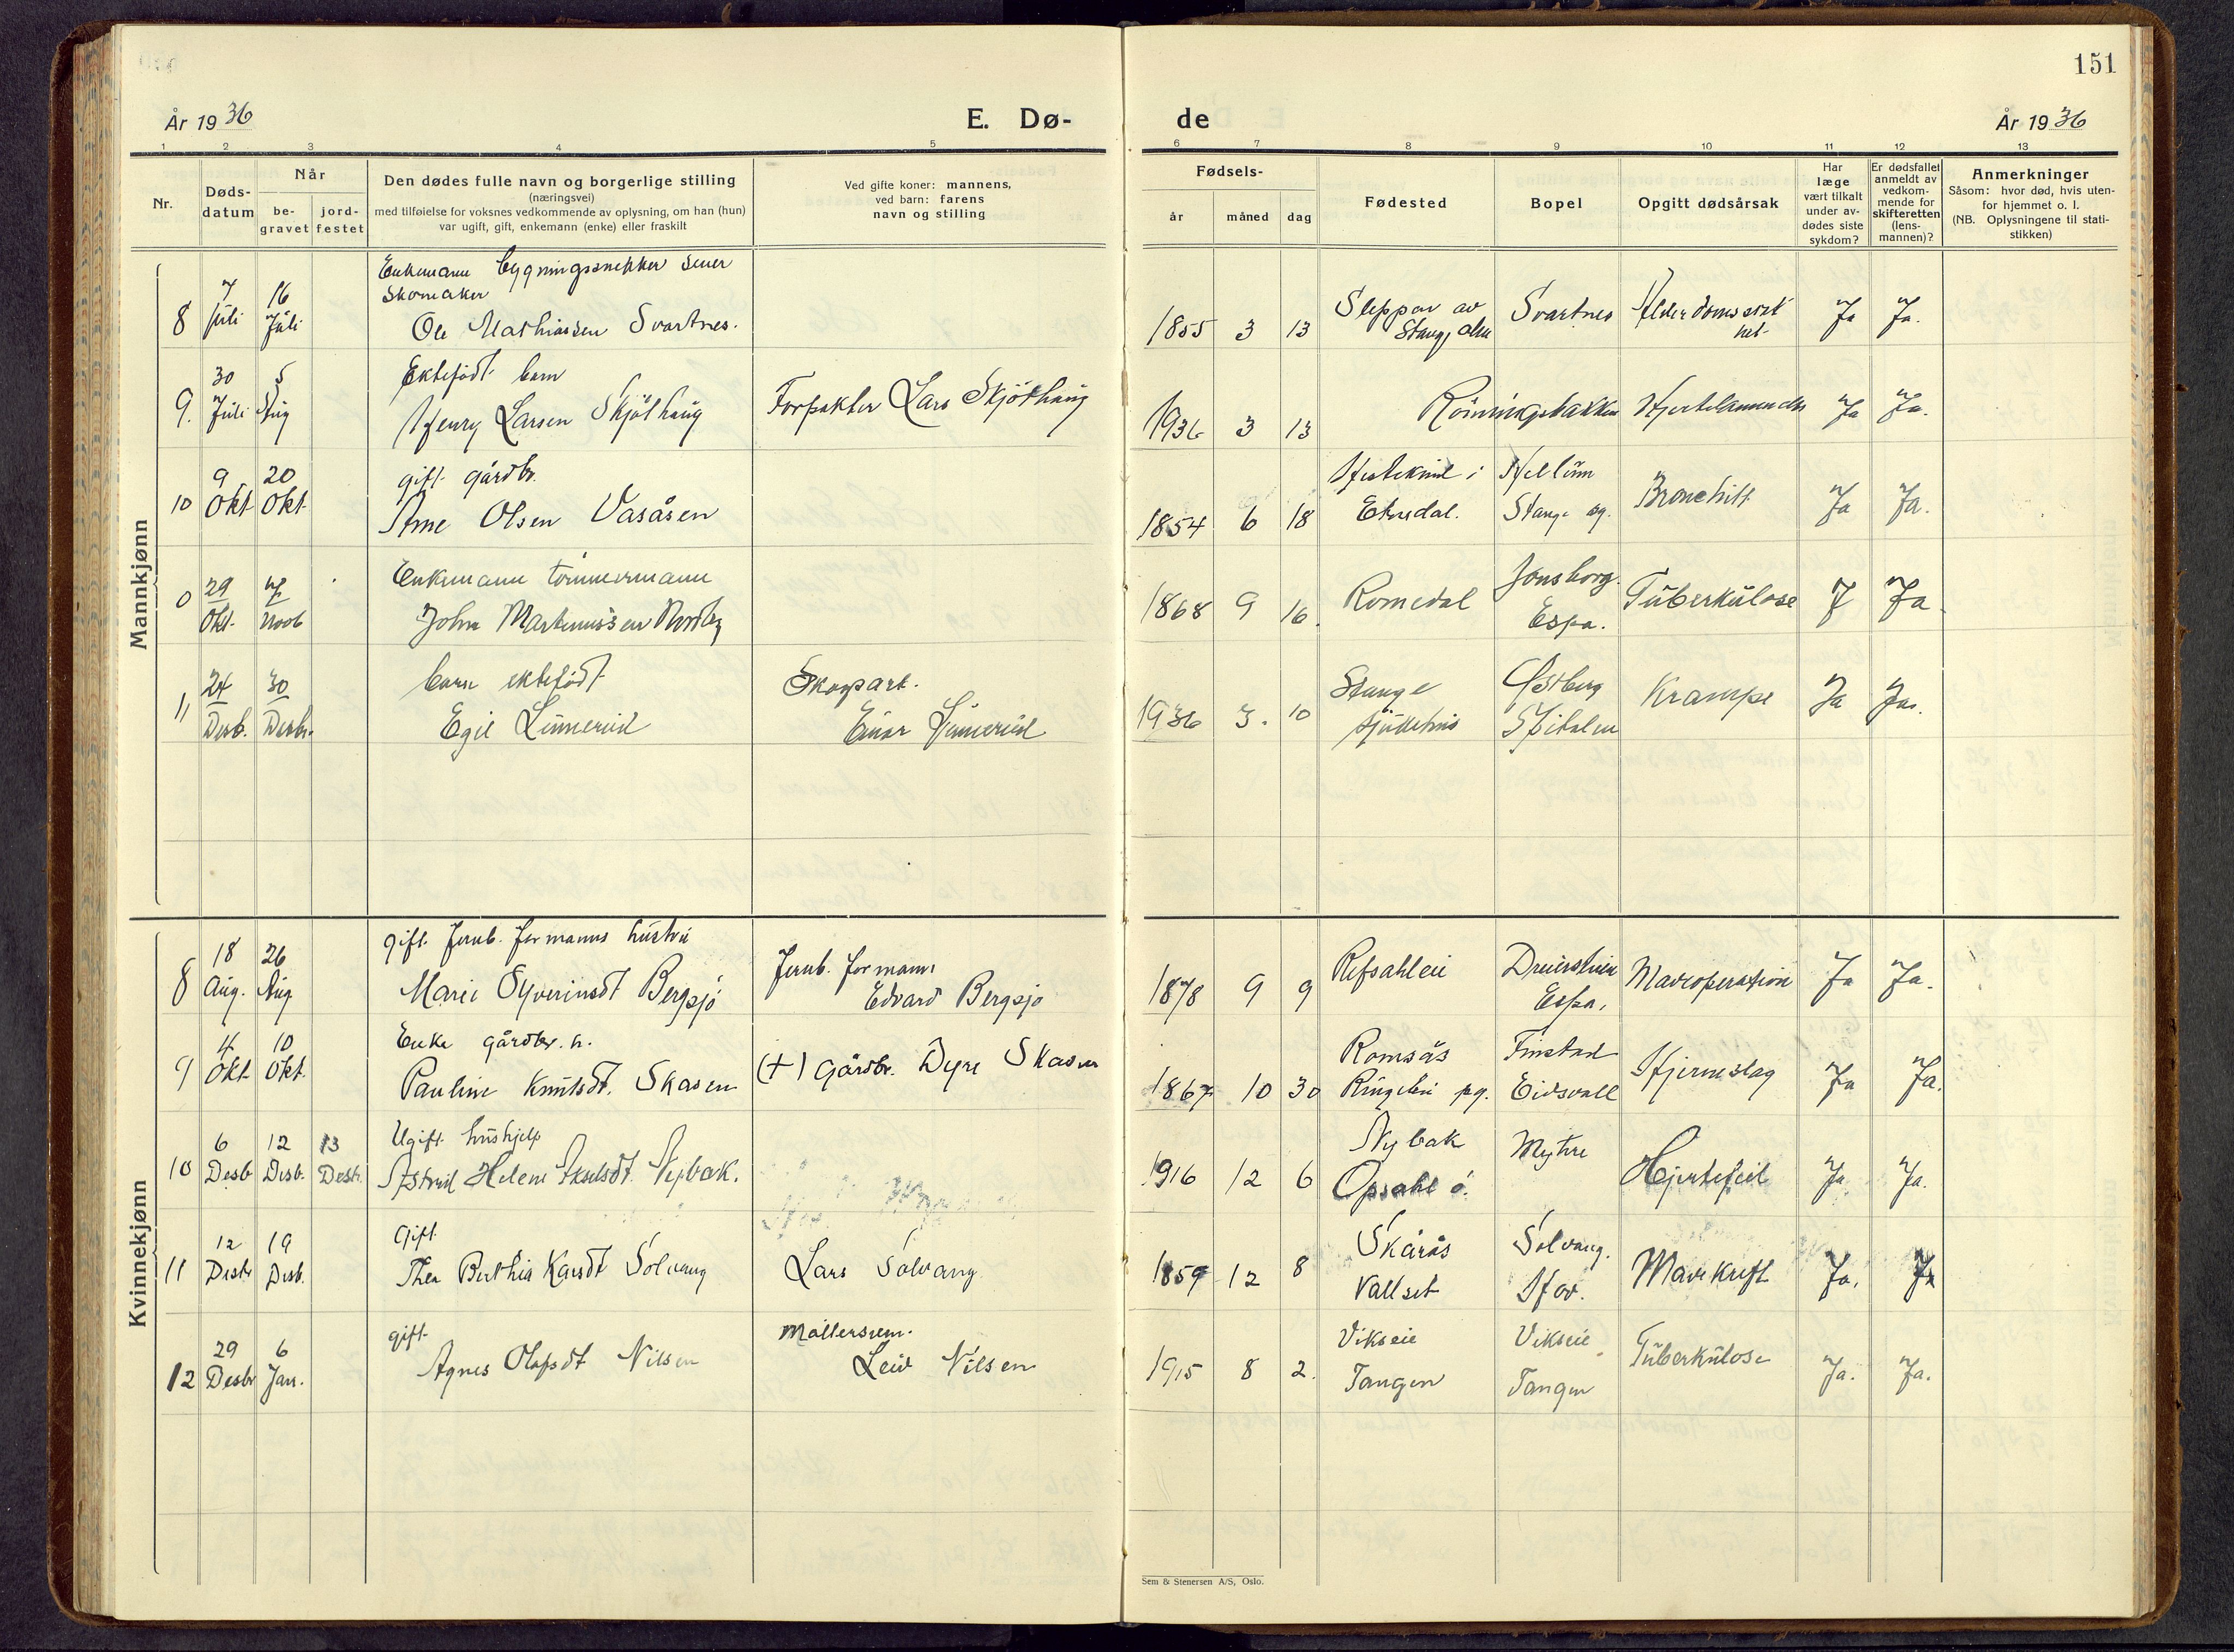 151
År 1936
E. Dø-
de
År 1936
1 2 3 4 5 6 7 8 9 10 11 12 13
Nr.
Døds-
datum
Når
be-
gravet
jord-
festet
Den dødes fulle navn og borgerlige stilling
(næringsvei)
med tilføielse for voksnes vedkommende av oplysning, om han (hun)
var ugift, gift, enkemann (enke) eller fraskilt
Ved gifte koner: mannens,
ved barn: farens
navn og stilling
Fødsels-
år
måned
dag
Fødested
Bopel
Opgitt dødsårsak
Har
læge
vært tilkalt
under av-
dødes siste
sykdom?
Er dødsfallet
anmeldt av
vedkom-
mende for
skifteretten
(lens-
mannen)?
Anmerkninger
Såsom: hvor død, hvis uten-
for hjemmet o. l.
(NB. Oplysningene til stati-
stikken)
Mannkjønn
Enkemann bygningssnekker
skomaker
8 7 juli 16 Juli Ole Mathiassen Svartnes. 1855 3 13 Sleppen av Stange alm Svartnes Ja Ja.
Ektefødt barn
9. 30 Juli 5 Aug Henry Larsen Skjølhaug Forpakter Lars Skjølhaug 1936 3 13 Ja Ja.
gift gårdbr.
10 9 Okt 20 Okt. Arne Olsen Vasåsen 1854 6 18 Etnedal. Stange Bronchitt Ja Ja.
Enkemann tømmermann
0 29 Okt. 7 Novb John Martinussen 1868 9 16. Romedal Jonsborg. Espa. Tuberkulose J Ja
barn ektefødt
11 24 Desb. 30 Desbr. Egil Linnerud Skogsarb. Einar Linnerud 1936 3. 10 Stange sjukehus Østberg Spitalen Krampe Ja Ja.
Kvinnekjønn
gift Jernb. formanns hustru
8 18 Aug. 26 Aug. Marie Syverinsdt Bergsjø Jernb. formann Edvard Bergsjø 1878 9 9 Refsahleie Espa. Maveoperation Ja Ja.
Enke gårdbr. h.
9 4 Okt 10 Okt. Pauline Knutsdt. Skasen (+) Gårdbr. Dyre Skasen 1867 10 30 Romsås Ringebu pg. Finstad Eidsvall Hjerneslag Ja Ja.
Ugift hushjelp
10 6 Desb 12 Desb. 13 Desb. Astrid Helene Akselsdt. Nybak. 1916 12 6 Nybak Opsahl ø. Mytre Hjertefeil Ja Ja.
Gift
11 12 Desbr 19 Desb. Thea Berthia Karsdt Solvang Lars Solvang 1859 12 8 Skårås Vallset Solvang. Mavekreft Ja. Ja
gift
12 29 Desbr 6 Jan. Agnes Olafsdt Nilsen Møllersvenn. Leiv Nilsen 1915 8 2. Vikseie Tangen Vikseie Tangen Tuberkulose Ja. Ja.
Sem & Stenersen A/S, Oslo.